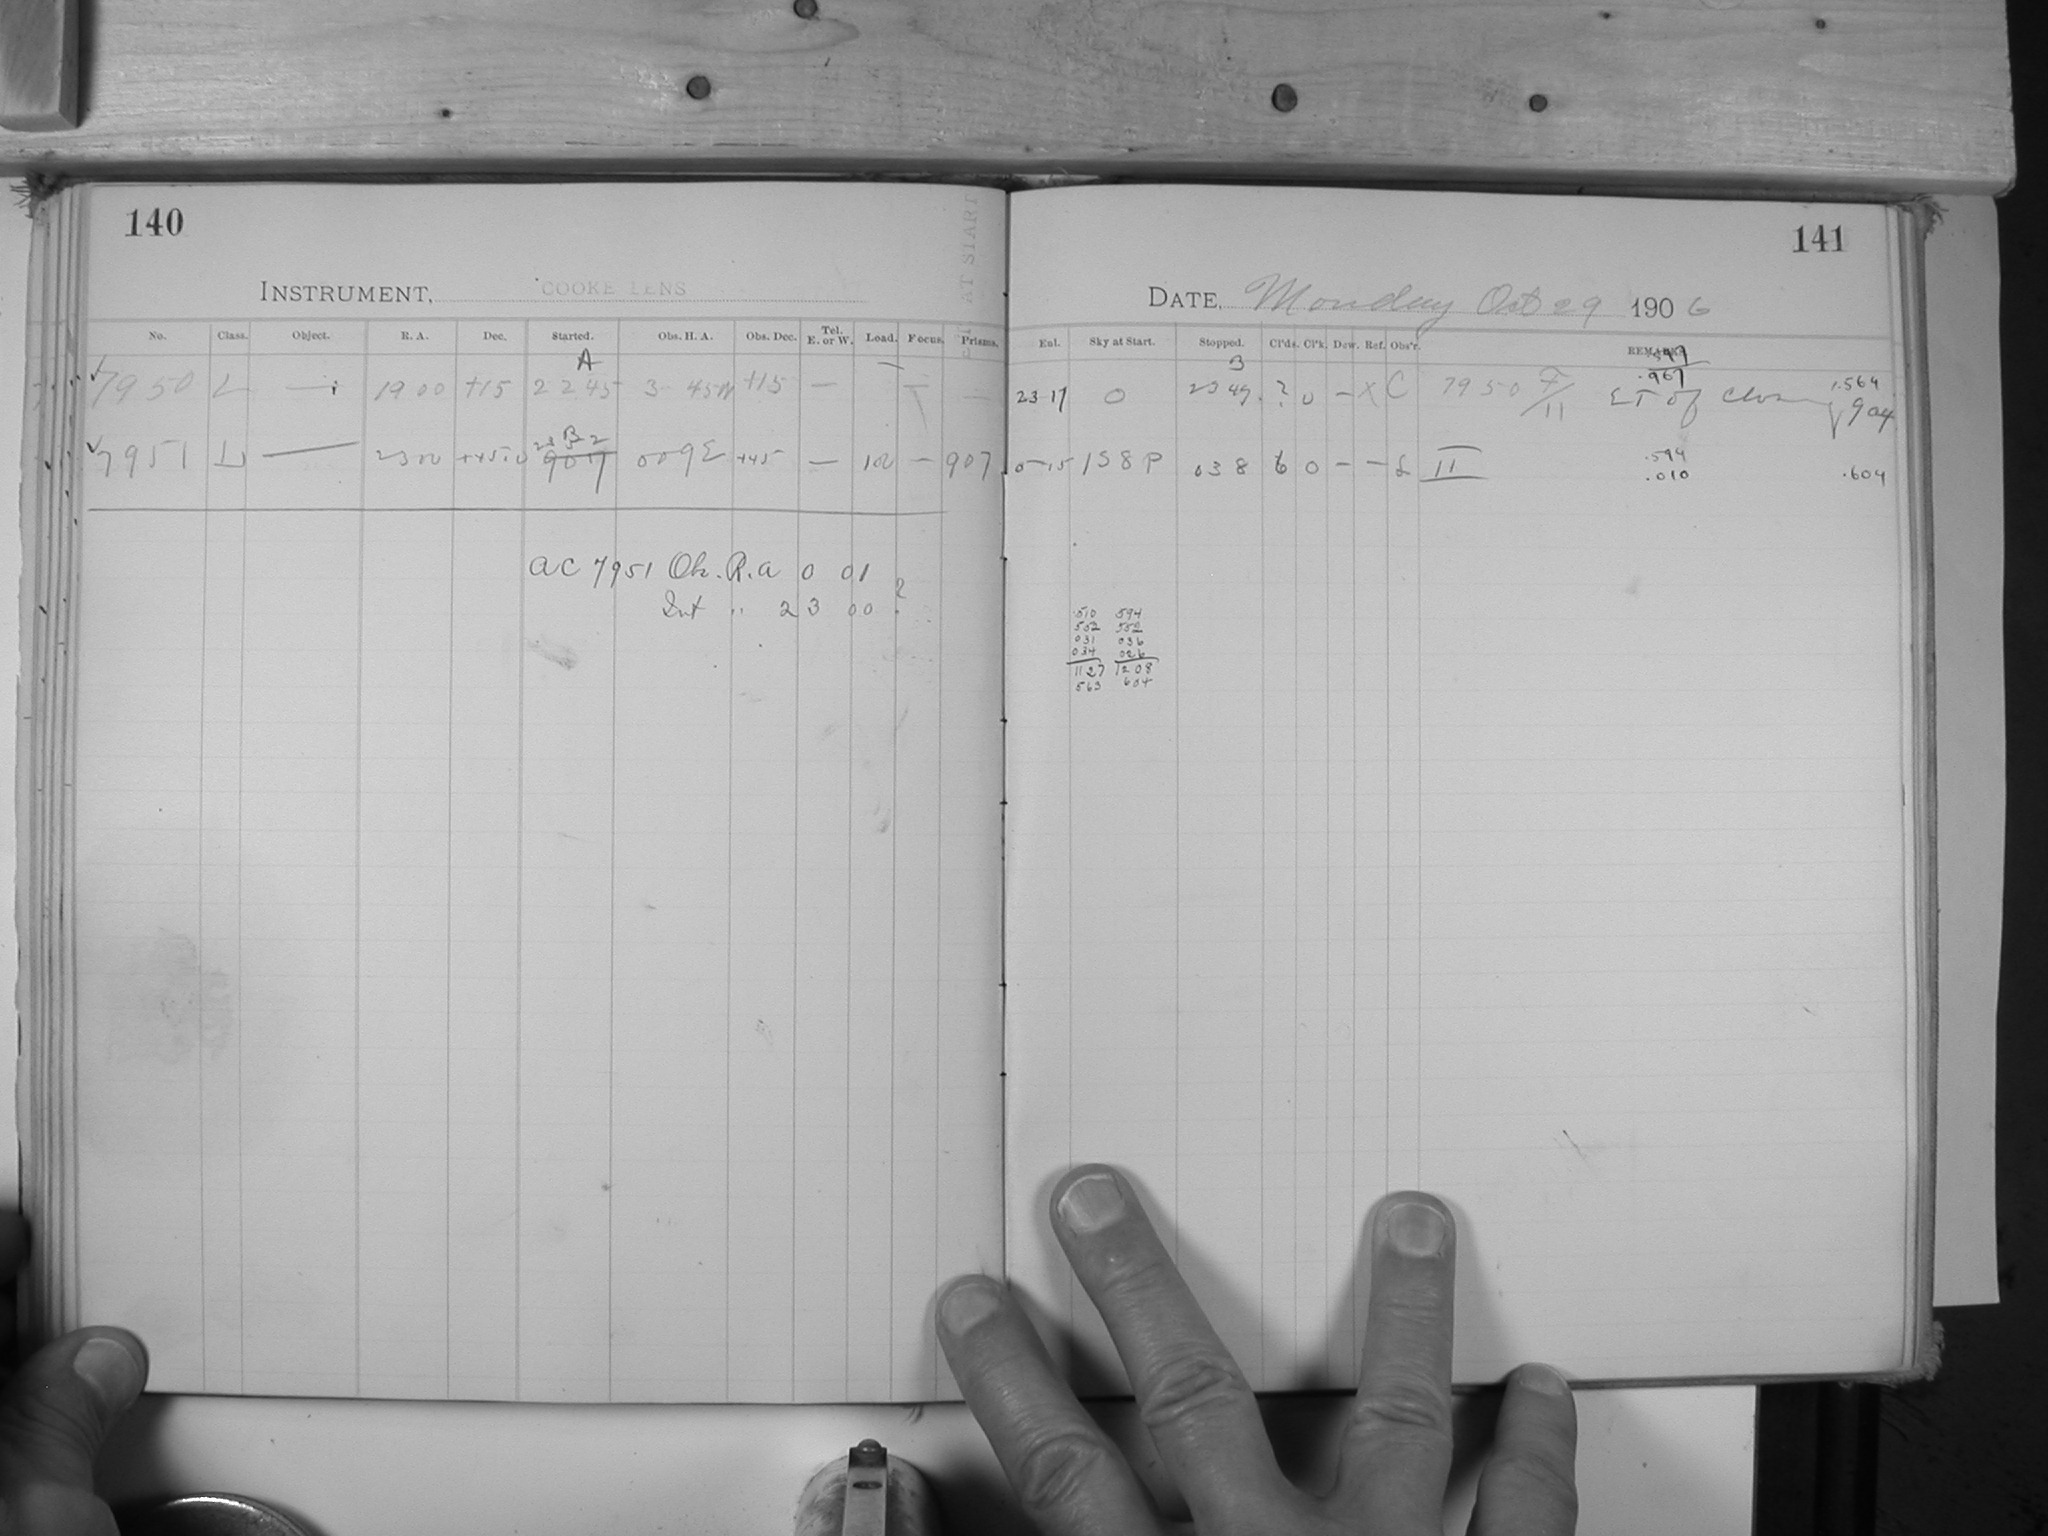 140
INSTRUMENT, COOKE LENS
AT START
No. Class. Object. R. A. Dec. Started. Obs. H. A. Obs. Dec. Tel. E. or W. Load. Focus. Prisms.
A
7950 L — 19 00 +15 22 45 3 45W +15 — —
B
7951 L — 23 00 +45 9 07 0 09E +45 — 100 — 907
AC 7951 Obs. R.a 0 01
Int " 23 00 ?
141
DATE, Monday Oct 29 1906
Enl. Sky at Start. Stopped. Cl'ds. Cl'k. Dew. Ref. Obs'r. REMARKS
3
23 17 0 23 49 ? 0 — X C 7950 F/11 ET of .967 1.564 904
0-15 1S8P 038 6 0 — — L II .594 .604
.010
.510 594
552 552
031 036
034 026
1127 1208
563 604